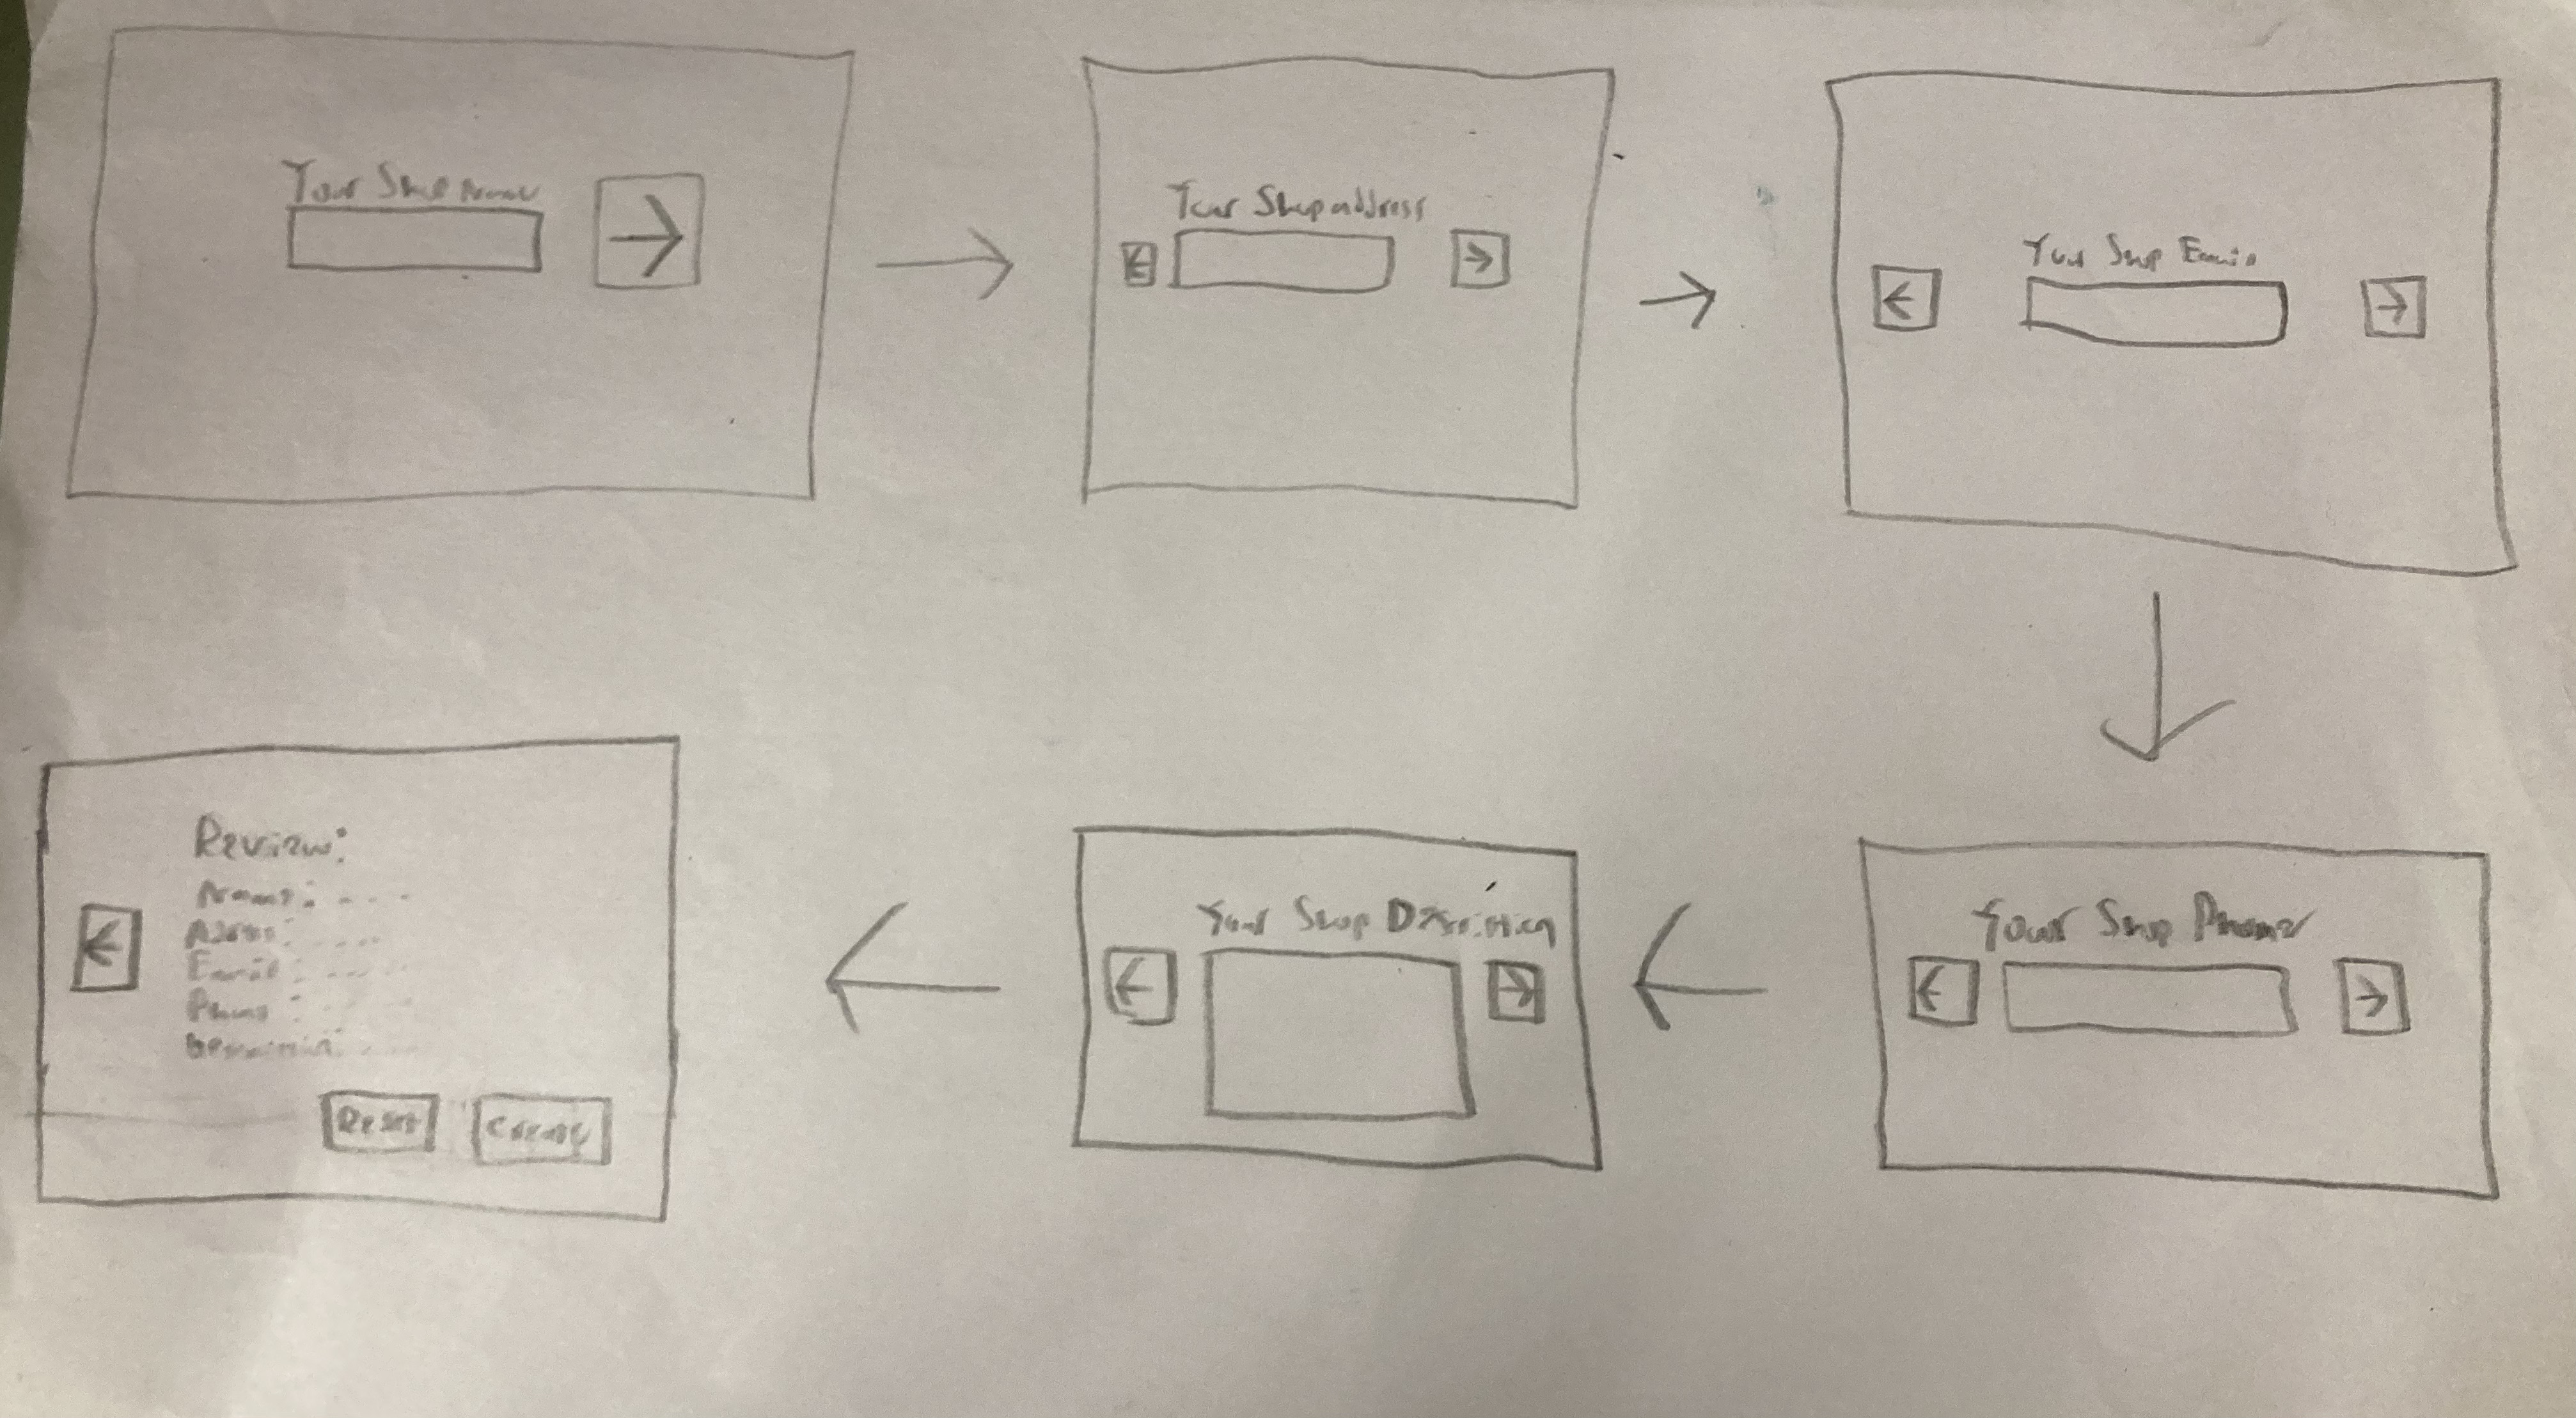 Your Shop name
Your Shop address
Your Shop Email
Your Shop Phone
Your Shop Description
Review:
Name:
Adress:
Email:
Phone:
Description:
Reset
Create